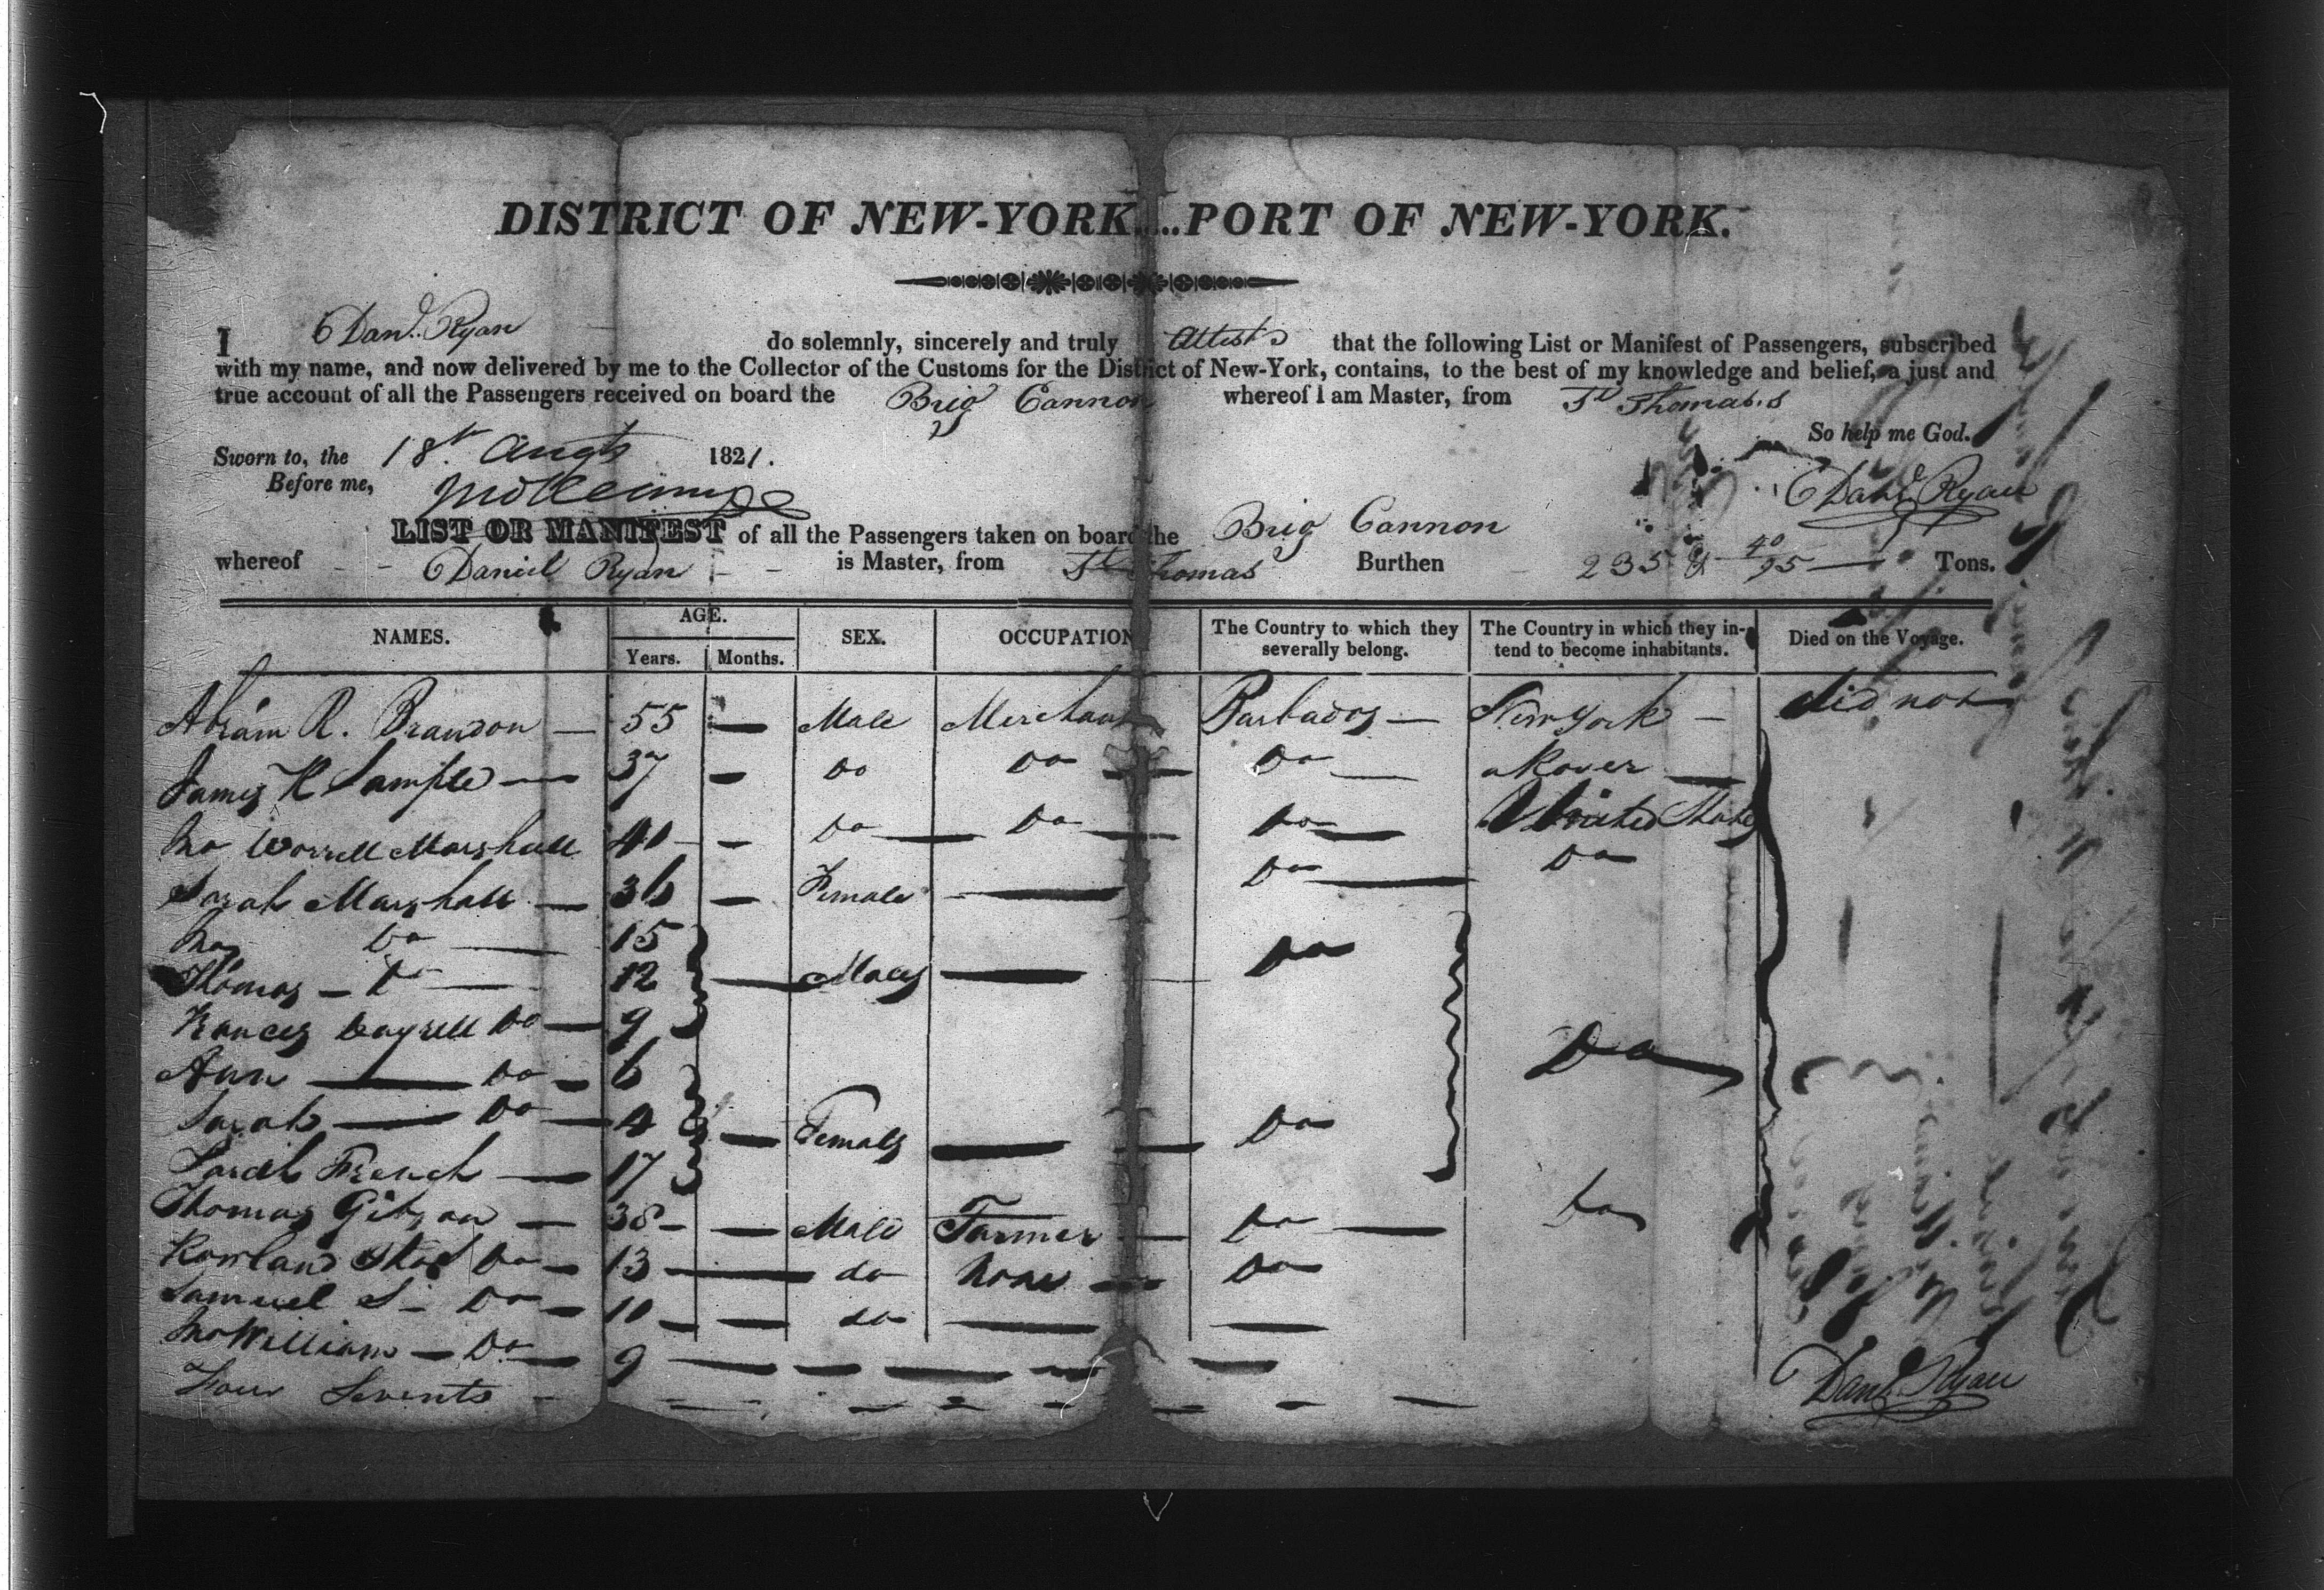 DISTRICT OF NEW-YORK....PORT OF NEW-YORK.
I Danl. Ryan do solemnly, sincerely and truly Attest that the following List or Manifest of Passengers, subscribed
with my name, and now delivered by me to the Collector of the Customs for the District of New-York, contains, to the best of my knowledge and belief, a just and
true account of all the Passengers received on board the Brig Cannon whereof I am Master, from St Thomas.s
So help me God.
Sworn to, the 18th Augt 1821.
Before me,
Danl Ryan
LIST OR MANIFEST of all the Passengers taken on board the Brig Cannon
whereof Daniel Ryan is Master, from St Thomas Burthen 235 & 40/95 Tons.
NAMES. AGE. SEX. OCCUPATION The Country to which they severally belong. The Country in which they intend to become inhabitants. Died on the Voyage.
Years. Months.
Abram R. Brandon — 55 — Male Merchant Barbados — New York — did not
James K Sample — 37 — Do Do — Do — a Rover —
Jno Worrell Marshall 41 — Do — Do — Do — United States
Sarah Marshall — 36 — Female — Do — Do
Jno Do — 15
Thomas — Do — 12 — Males — Do
Frances Do — 9
Ann — Do — 6 Do
Sarah — Do — 4 — Females — Do
Sarah French — 17
Thomas Gibson — 38 — Male Farmer — Do — Do
Rowland Do — 13 — do None — Do
Samuel S — Do — 11 — do — —
Jno William — Do — 9 — — — — —
Four Servents —
Danl. Ryan